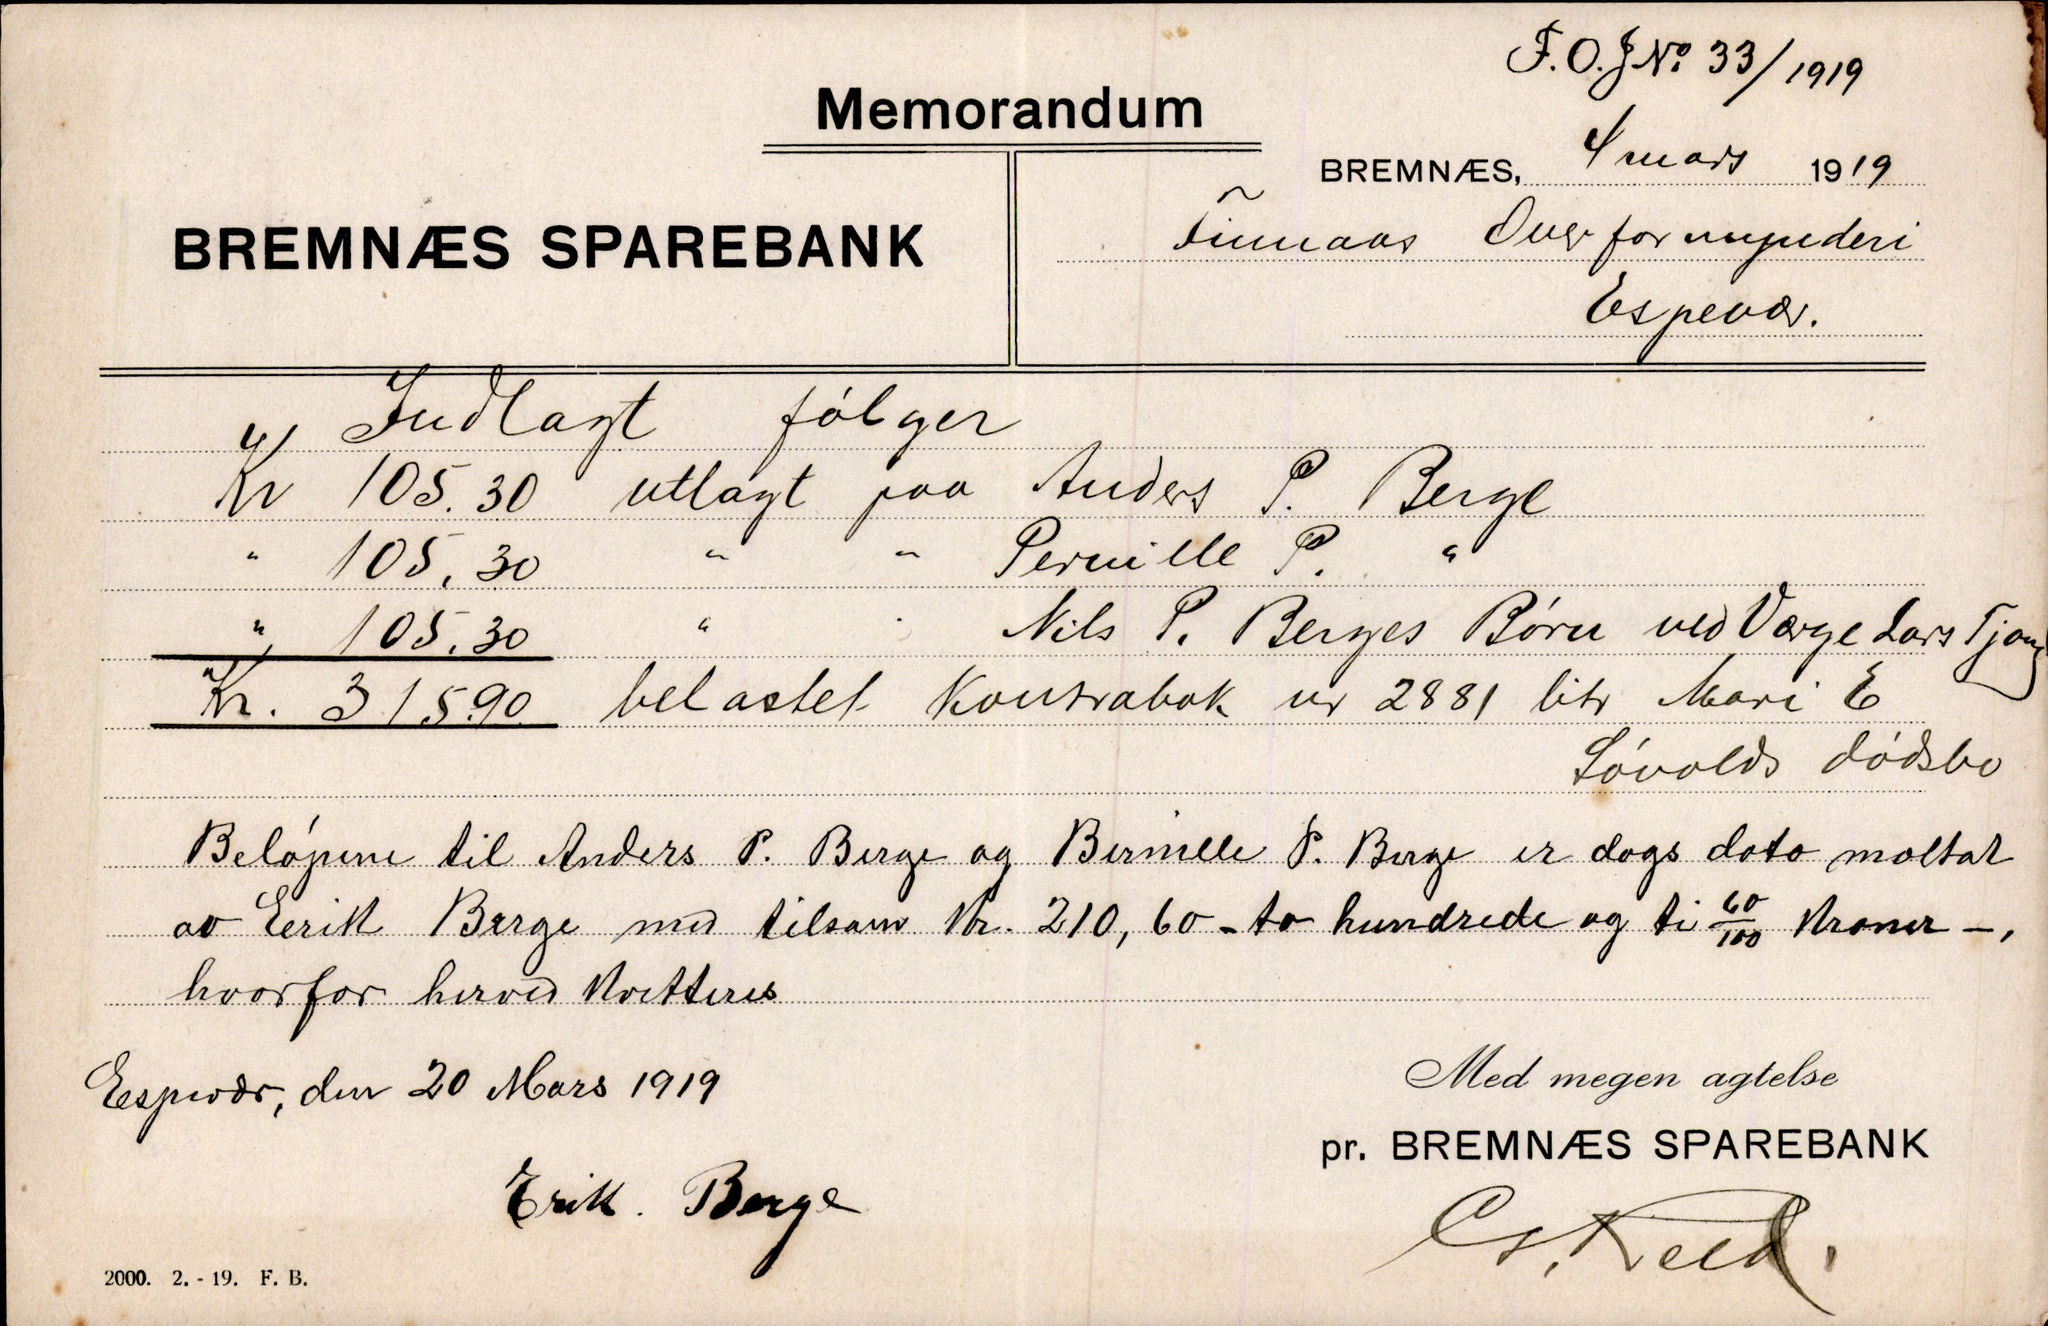 F. O. J No. 33/1919
Memorandum
BREMNÆS, 4 mars 1919
BREMNÆS SPAREBANK
Finnaas Overformynderi
Espevær.
Indlagt følger
Kr 105.30 utlagt paa Anders P. Berge
" 105,30 " " Pernille P. "
" 105.30 " " Nils P. Berges Børn ved Værge Lars Tjong
Kr. 315.90 belastet Kontrabok nr 2881 litr Mari E
Løvolds dødsbo
Beløpene til Anders P. Berge og Bernille P. Berge er dags dato mottat
av Eerik Berge med tilsam Kr. 210,60 - to hundrede og ti 60/100 Kroner -,
hvorfor herved kvitteres
Eespevær, den 20 Mars 1919
Med megen agtelse
pr. BREMNÆS SPAREBANK
Erik. Berge
2000. 2. - 19. F. B.